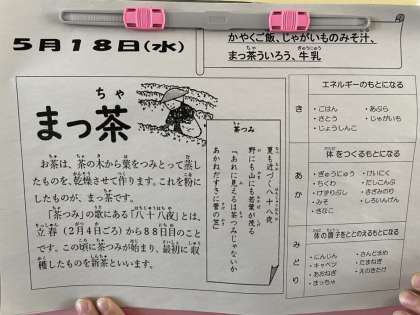 5月18日(水)
かやくご飯、じゃがいものみそ汁、
まっ茶ういろう、牛乳
まっ茶
お茶は、茶の木から葉をつみとって蒸し
たものを、乾燥させて作ります。これを粉に
したものが、まっ茶です。
「茶つみ」の歌にある「八十八夜」とは、
立春(2月4日ごろ)から88日目のこと
です。この頃に茶つみが始まり、最初に収
穫したものを新茶といいます。
茶つみ
夏も近づく八十八夜
野にも山にも若葉が茂る
「あれに見えるは茶つみじゃないか
あかねだすきに菅の笠」
エネルギーのもとになる
き
・ごはん ・あぶら
・さとう ・じゃがいも
・じょうしんこ
体をつくるもとになる
あか
・ぎゅうにゅう ・けいにく
・ちくわ ・だしこんぶ
・けずりぶし ・きざみのり
・みそ ・しろいんげん
・きなこ
体の調子をととのえるもとになる
みどり
・にんじん ・さんどまめ
・キャベツ ・たまねぎ
・あおねぎ ・えのきたけ
・まっちゃ